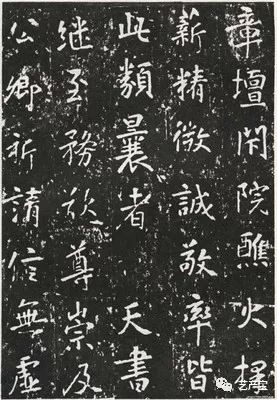 章壇院醮火擇
薪精微誠敬率皆
此類曩者天書
继至務於尊崇及
公卿祈請信無虛